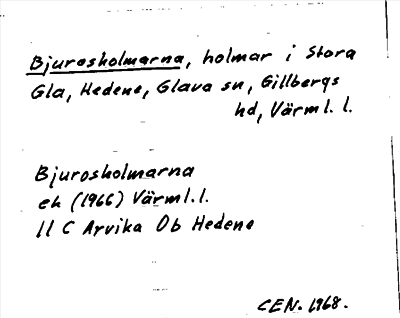 Bjurosholmarna, holmar i Stora
Gla, Hedene, Glava sn, Gillbergs
hd, Värml. l.
Bjurosholmarna
ek (1966) Värml. l.
11 C Arvika Ob Hedene
CEN. 1968.